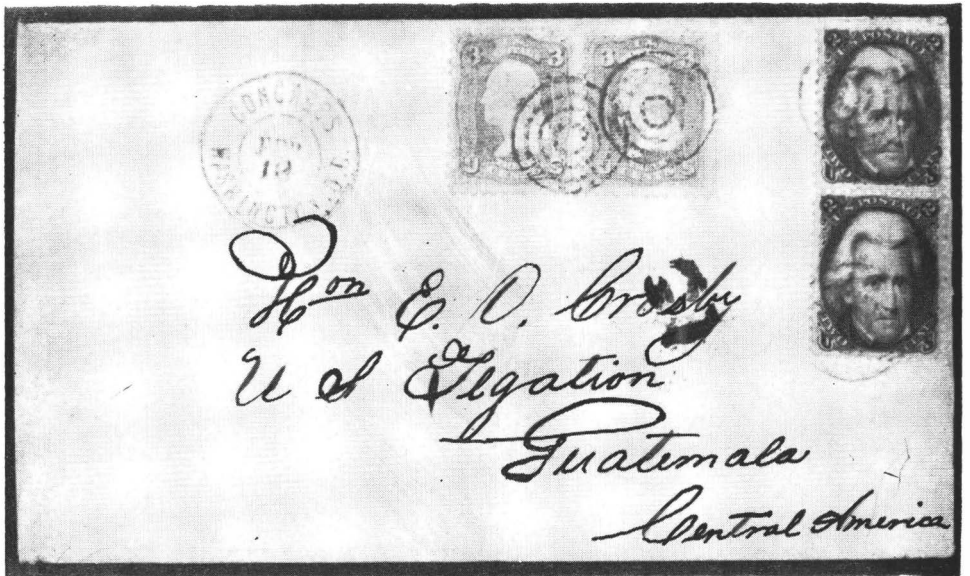 CONGRESS
19
WASHINGTON
3 3
3 3
Hon E. O. Crosby
U S Legation
Guatemala
Central America